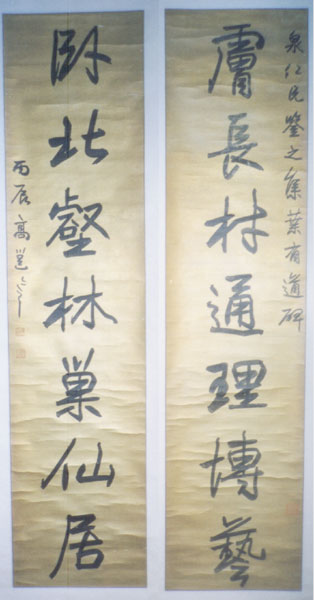 泉仁兄鑒之集葉有道碑
膚長材通理博藝
臥北壑林巢仙居
丙辰高邕之